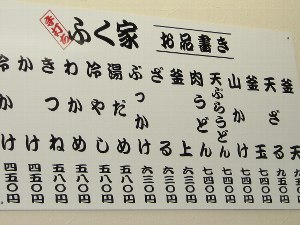 手打ち
ふく家
お品書き
釜天 九五〇円
天ざる 九五〇円
釜玉 七四〇円
山かけ 七四〇円
天ぷらうどん 七四〇円
肉うどん 七四〇円
釜上 六三〇円
ざる 六三〇円
ぶっかけ 六三〇円
湯だめ 五八〇円
冷やし 五八〇円
わかめ 五八〇円
きつね 五八〇円
かけ 四五〇円
冷かけ 四五〇円